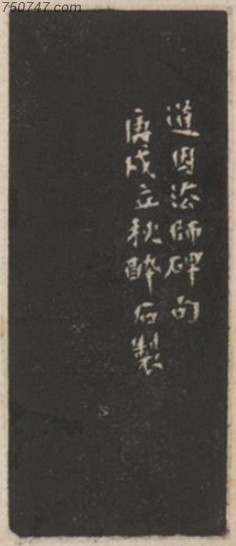 750747.com
道因法師碑句
庚戌立秋醉石製